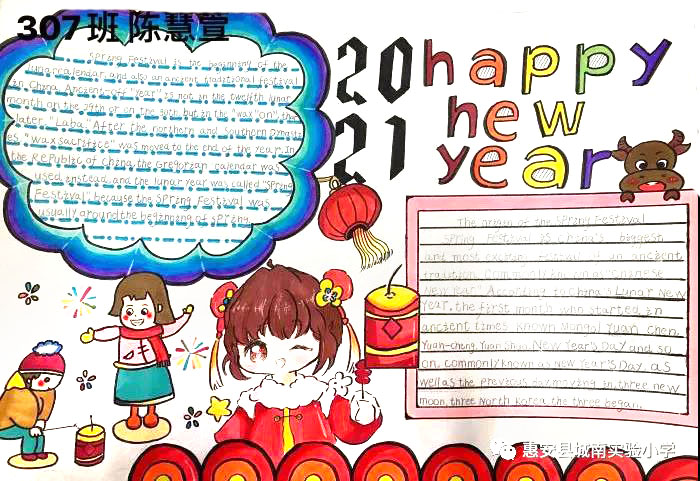 307班 陈慧萱
Spring Festival is the beginning of the
lunar calendar, and also an ancient traditional festival
in China. Ancient-off "year" is not in the twelfth lunar
month on the 29th or on the 30th, but in the "wax" on", the
later "Laba". After the northern and Southern Dynasti
es "wax sacrifice" was moved to the end of the year. In
the Republic of China, the Gregorian calendar was
used instead, and the lunar year was called "Spring
Festival", because the Spring Festival was
usually around the beginning of spring.
2021
happy
new
year
The origin of the Spring Festival
Spring Festival is China's biggest
and most exciting festival. It is an ancient
tradition. Commonly known as "Chinese
New Year". According to China's Lunar New
Year, the first month is started in
ancient times known Mongol Yuan chen,
Yuan-cheng, Yuan Shuo, New Year's Day and so
on, commonly known as New Year's Day, as
well as the previous day moving in three new
moon, three North Korea, the three began.
惠安县城南实验小学